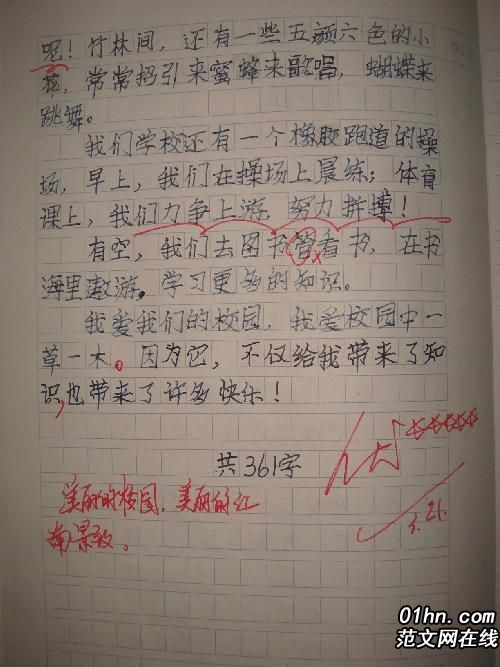 呢！竹林间，还有一些五颜六色的小
花，常常招引来蜜蜂来歌唱，蝴蝶来
跳舞。
我们学校还有一个橡胶跑道的操
场，早上，我们在操场上晨练；体育
课上，我们力争上游，努力拼搏！
有空，我们去图书馆看书，在书
海里遨游。学习更多的知识。
我爱我们的校园，我爱校园中一
草一木。因为它，不仅给我带来了知
识，也带来了许多快乐！
共361字
优
美丽的校园，美丽的红
南景致。
01hn.com
范文网在线